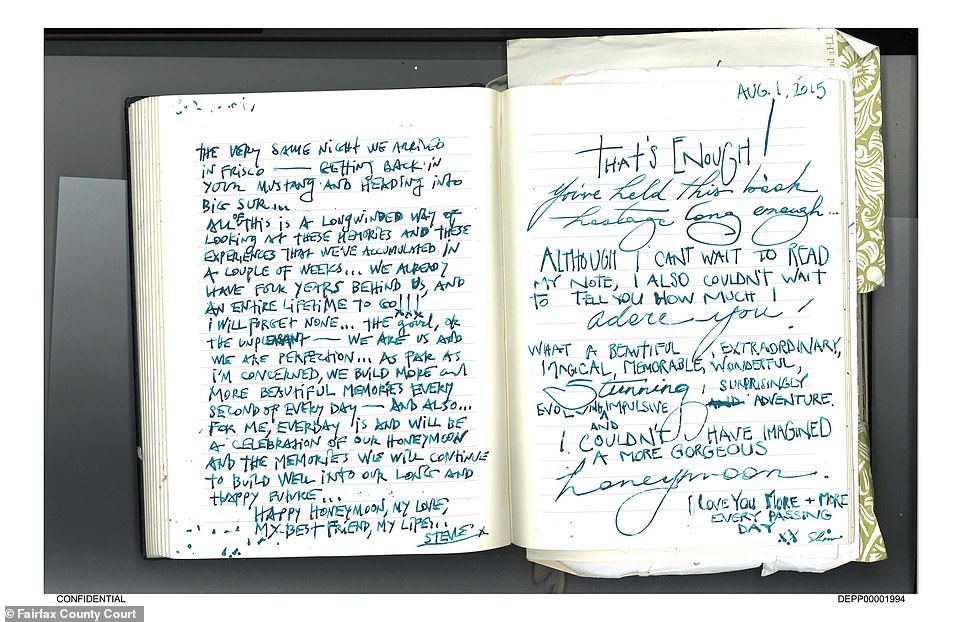 THE VERY SAME NIGHT WE ARRIVED
IN FRISCO — GETTING BACK IN
YOUR MUSTANG AND HEADING INTO
BIG SUR...
ALL OF THIS IS A LONGWINDED WAY OF
LOOKING AT THESE MEMORIES AND THESE
EXPERIENCES THAT WE'VE ACCUMULATED IN
A COUPLE OF WEEKS... WE ALREADY
HAVE FOUR YEARS BEHIND US, AND
AN ENTIRE LIFETIME TO GO!!!
xxx
I WILL FORGET NONE... THE good, OR
THE UNPLEASANT — WE ARE US AND
WE ARE PERFECTION... AS FAR AS
I'M CONCERNED, WE BUILD MORE and
MORE BEAUTIFUL MEMORIES EVERY
SECOND OF EVERY DAY — AND ALSO...
FOR ME, EVERYDAY IS AND WILL BE
A CELEBRATION OF OUR HONEYMOON
AND THE MEMORIES WE WILL CONTINUE
TO BUILD WELL INTO OUR LONG AND
HAPPY FUTURE...
HAPPY HONEYMOON, MY LOVE,
MY BEST FRIEND, MY LIFE...
STEVE X
AUG. 1, 2015
THAT'S ENOUGH!
You've held this book
hostage long enough...
ALTHOUGH I CAN'T WAIT TO READ
MY NOTE, I ALSO COULDN'T WAIT
TO TELL YOU HOW MUCH I
adore you!
WHAT A BEAUTIFUL, EXTRAORDINARY,
MAGICAL, MEMORABLE, WONDERFUL,
Stunning, SURPRISINGLY
EVOLVING, AND IMPULSIVE ADVENTURE.
I COULDN'T HAVE IMAGINED
A MORE GORGEOUS
honeymoon.
I LOVE YOU MORE + MORE
EVERY PASSING
DAY
XX Slim
CONFIDENTIAL
DEPP00001994
© Fairfax County Court